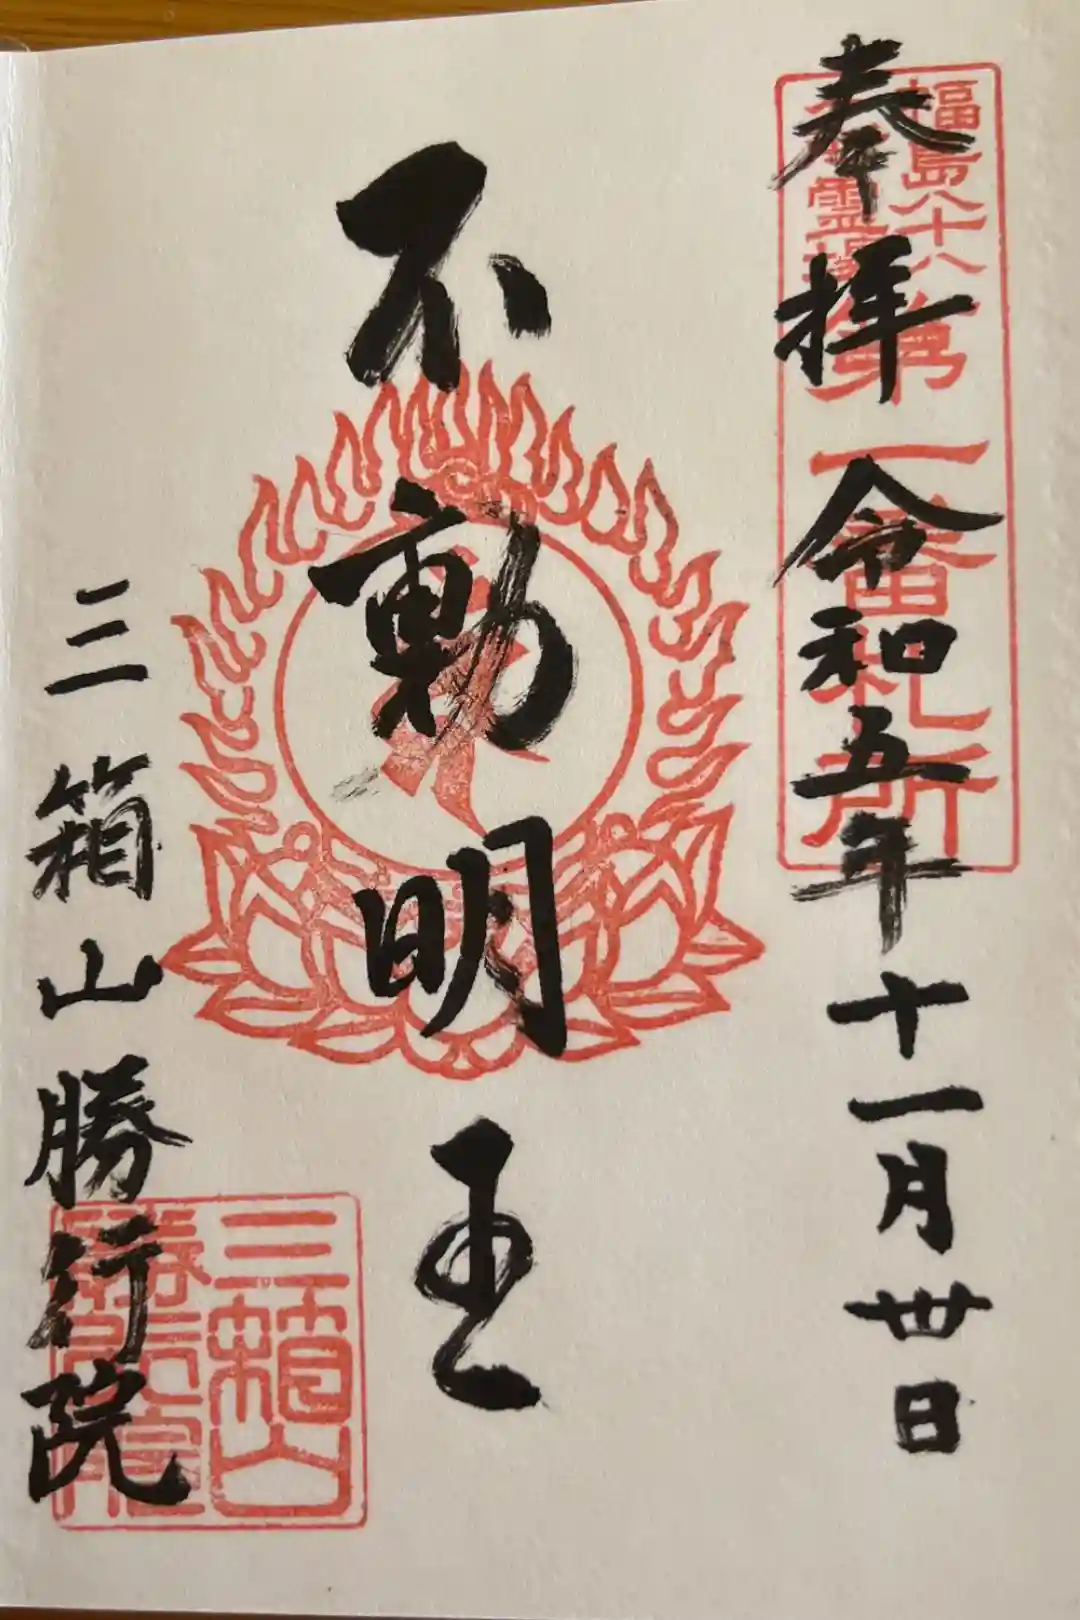 奉拝
令和五年十一月卅日
福島八十八
霊場
第一番札所
不動明王
三箱山勝行院
三箱山
勝行院